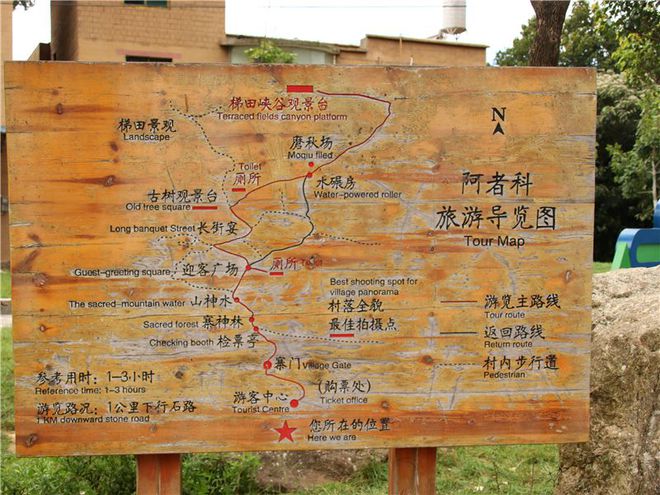 梯田峡谷观景台
Terraced fields canyon platform
梯田景观
Landscape
N
磨秋场
Moqiu filed
Toilet
厕所
水碾房
Water-powered roller
阿者科
旅游导览图
Tour Map
古树观景台
Old tree square
Long banquet Street 长街宴
Guest-greeting square 迎客广场
厕所
Best shooting spot for
village panorama
村落全貌
最佳拍摄点
The sacred-mountain water 山神水
Sacred forest 寨神林
Checking booth 检票亭
游览主路线
Tour route
返回路线
Return route
村内步行道
Pedestrian
寨门 Village Gate
参考用时：1-3小时
Reference time: 1-3 hours
游览路况：1公里下行石路
1 KM downward stone road
游客中心
Tourist Centre
(购票处)
Ticket office
您所在的位置
Here we are